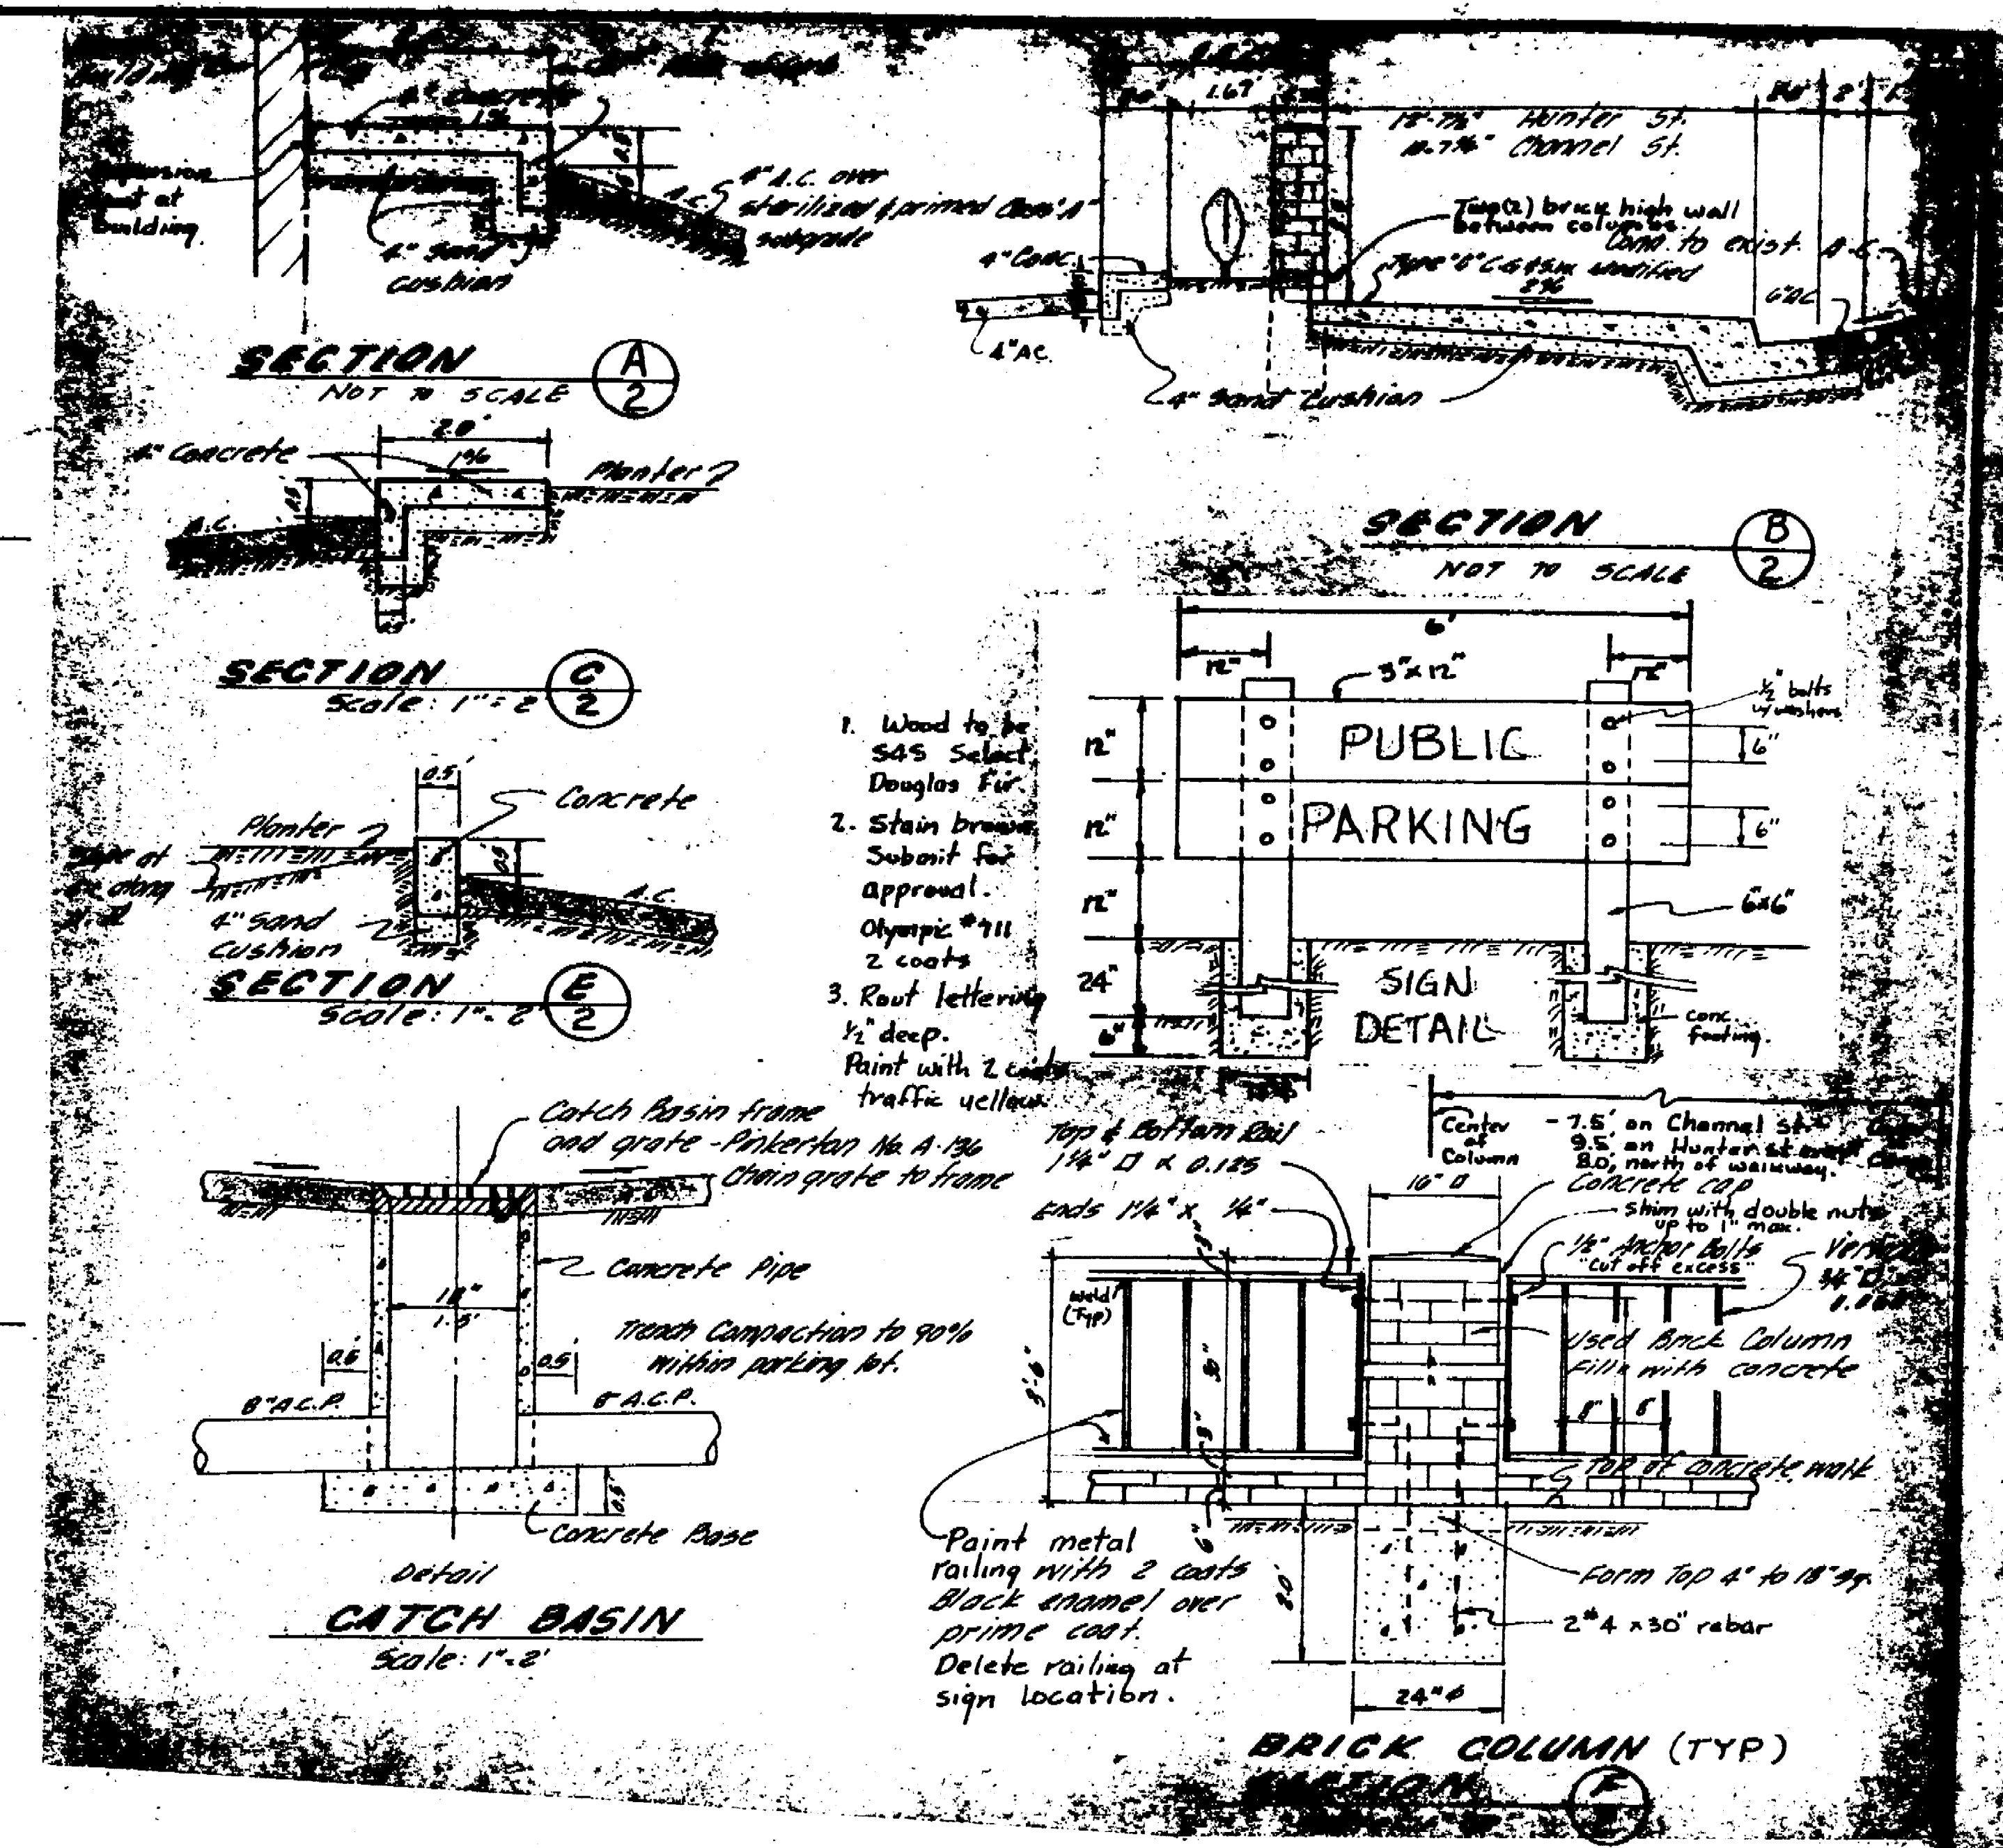 4" Concrete
1%
0.5'
Expansion
joint at
building.
4" A.C. over
sterilized & primed Class "A"
subgrade
A.C.
4" Sand
cushion
SECTION A
2
NOT TO SCALE
1.67'
Hunter St.
Channel St.
Two (2) brick high wall
between columns.
Conn. to exist. A.C.
modified
2%
4" Conc.
4" AC.
6" AC
4" Sand Cushion
SECTION B
2
NOT TO SCALE
2.0'
4" Concrete
1%
Planter
0.5'
A.C.
SECTION C
2
Scale: 1" = 2'
0.5'
Concrete
Planter
0.5'
A.C.
4" Sand
cushion
SECTION E
2
Scale: 1" = 2'
1. Wood to be
S4S Select
Douglas Fir.
2. Stain brown
Submit for
approval.
Olympic #911
2 coats
3. Rout lettering
1/2" deep.
Paint with 2 coats
traffic yellow.
6'
12"
12"
3" x 12"
1/2" bolts
w/washers
12"
PUBLIC
6"
12"
PARKING
6"
12"
6"x6"
24"
SIGN
DETAIL
6"
conc.
footing.
Catch Basin frame
and grate - Pinkerton No. A-136
Chain grate to frame
Concrete Pipe
18"
1.5'
Trench Compaction to 90%
within parking lot.
0.5'
0.5'
8" A.C.P.
8" A.C.P.
0.5'
Concrete Base
Detail
CATCH BASIN
Scale: 1"=2'
Center
of
Column
- 7.5' on Channel St.
9.5' on Hunter St. except
8.0' north of walkway.
Top & Bottom Rail
1 1/4" □ x 0.125
Ends 1 1/4" x 1/4"
16" □
Concrete cap
Shim with double nuts
up to 1" max.
1/2" Anchor Bolts
"Cut off excess"
weld
(Typ)
3'-6"
3"
Used Brick Column
Fill with concrete
8"
8"
Top of concrete walk
6"
Paint metal
railing with 2 coats
Black enamel over
prime coat.
Delete railing at
sign location.
2.0'
Form Top 4" to 18" sq.
2 #4 x 30" rebar
24" ø
BRICK COLUMN (TYP)
SECTION F